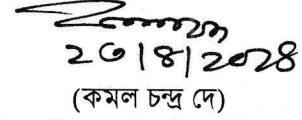 ২৩|৪|২০২৪
(কমল চন্দ্র দে)